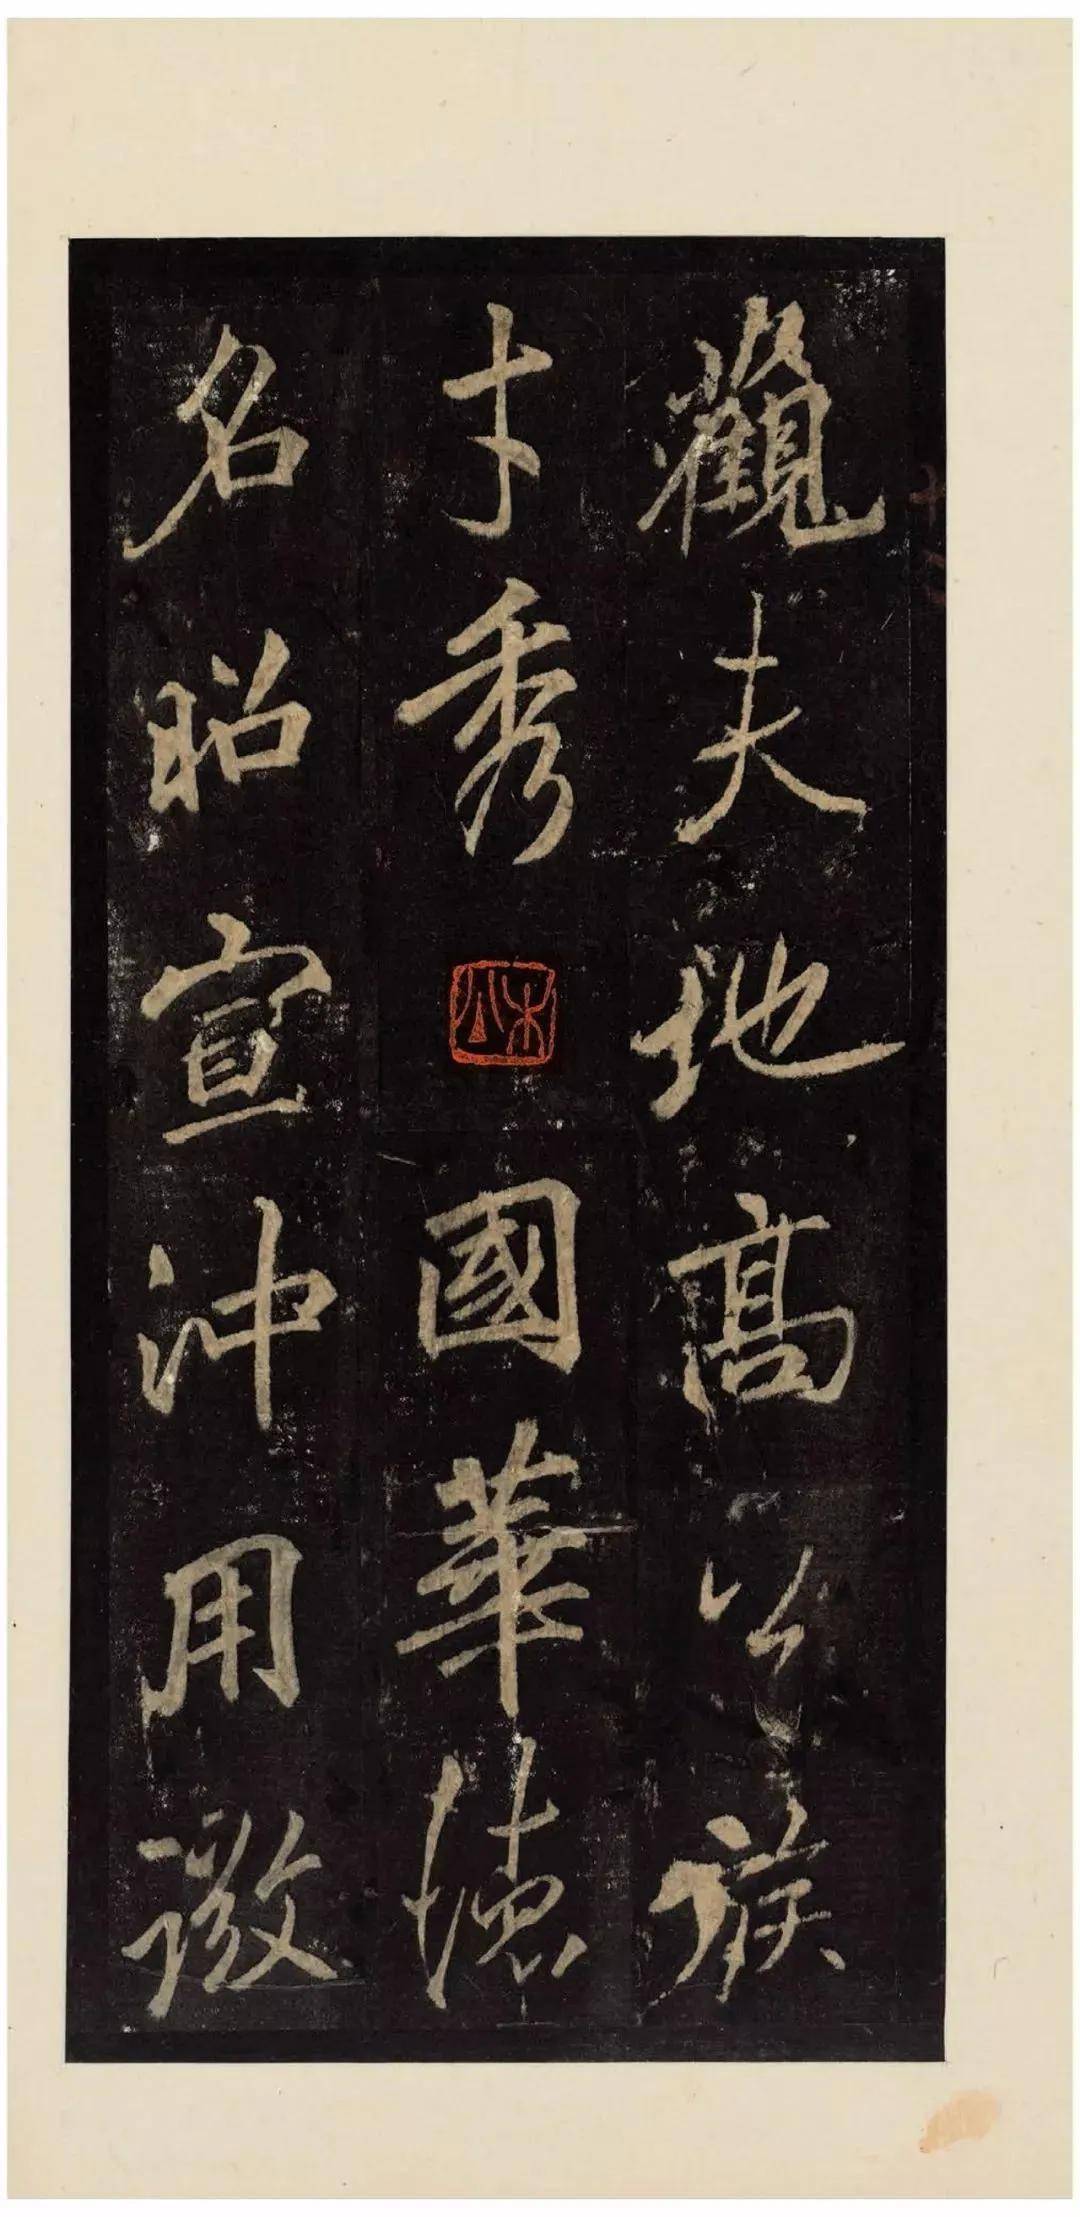 觀夫地高公族
才秀國華德
名昭宣沖用微